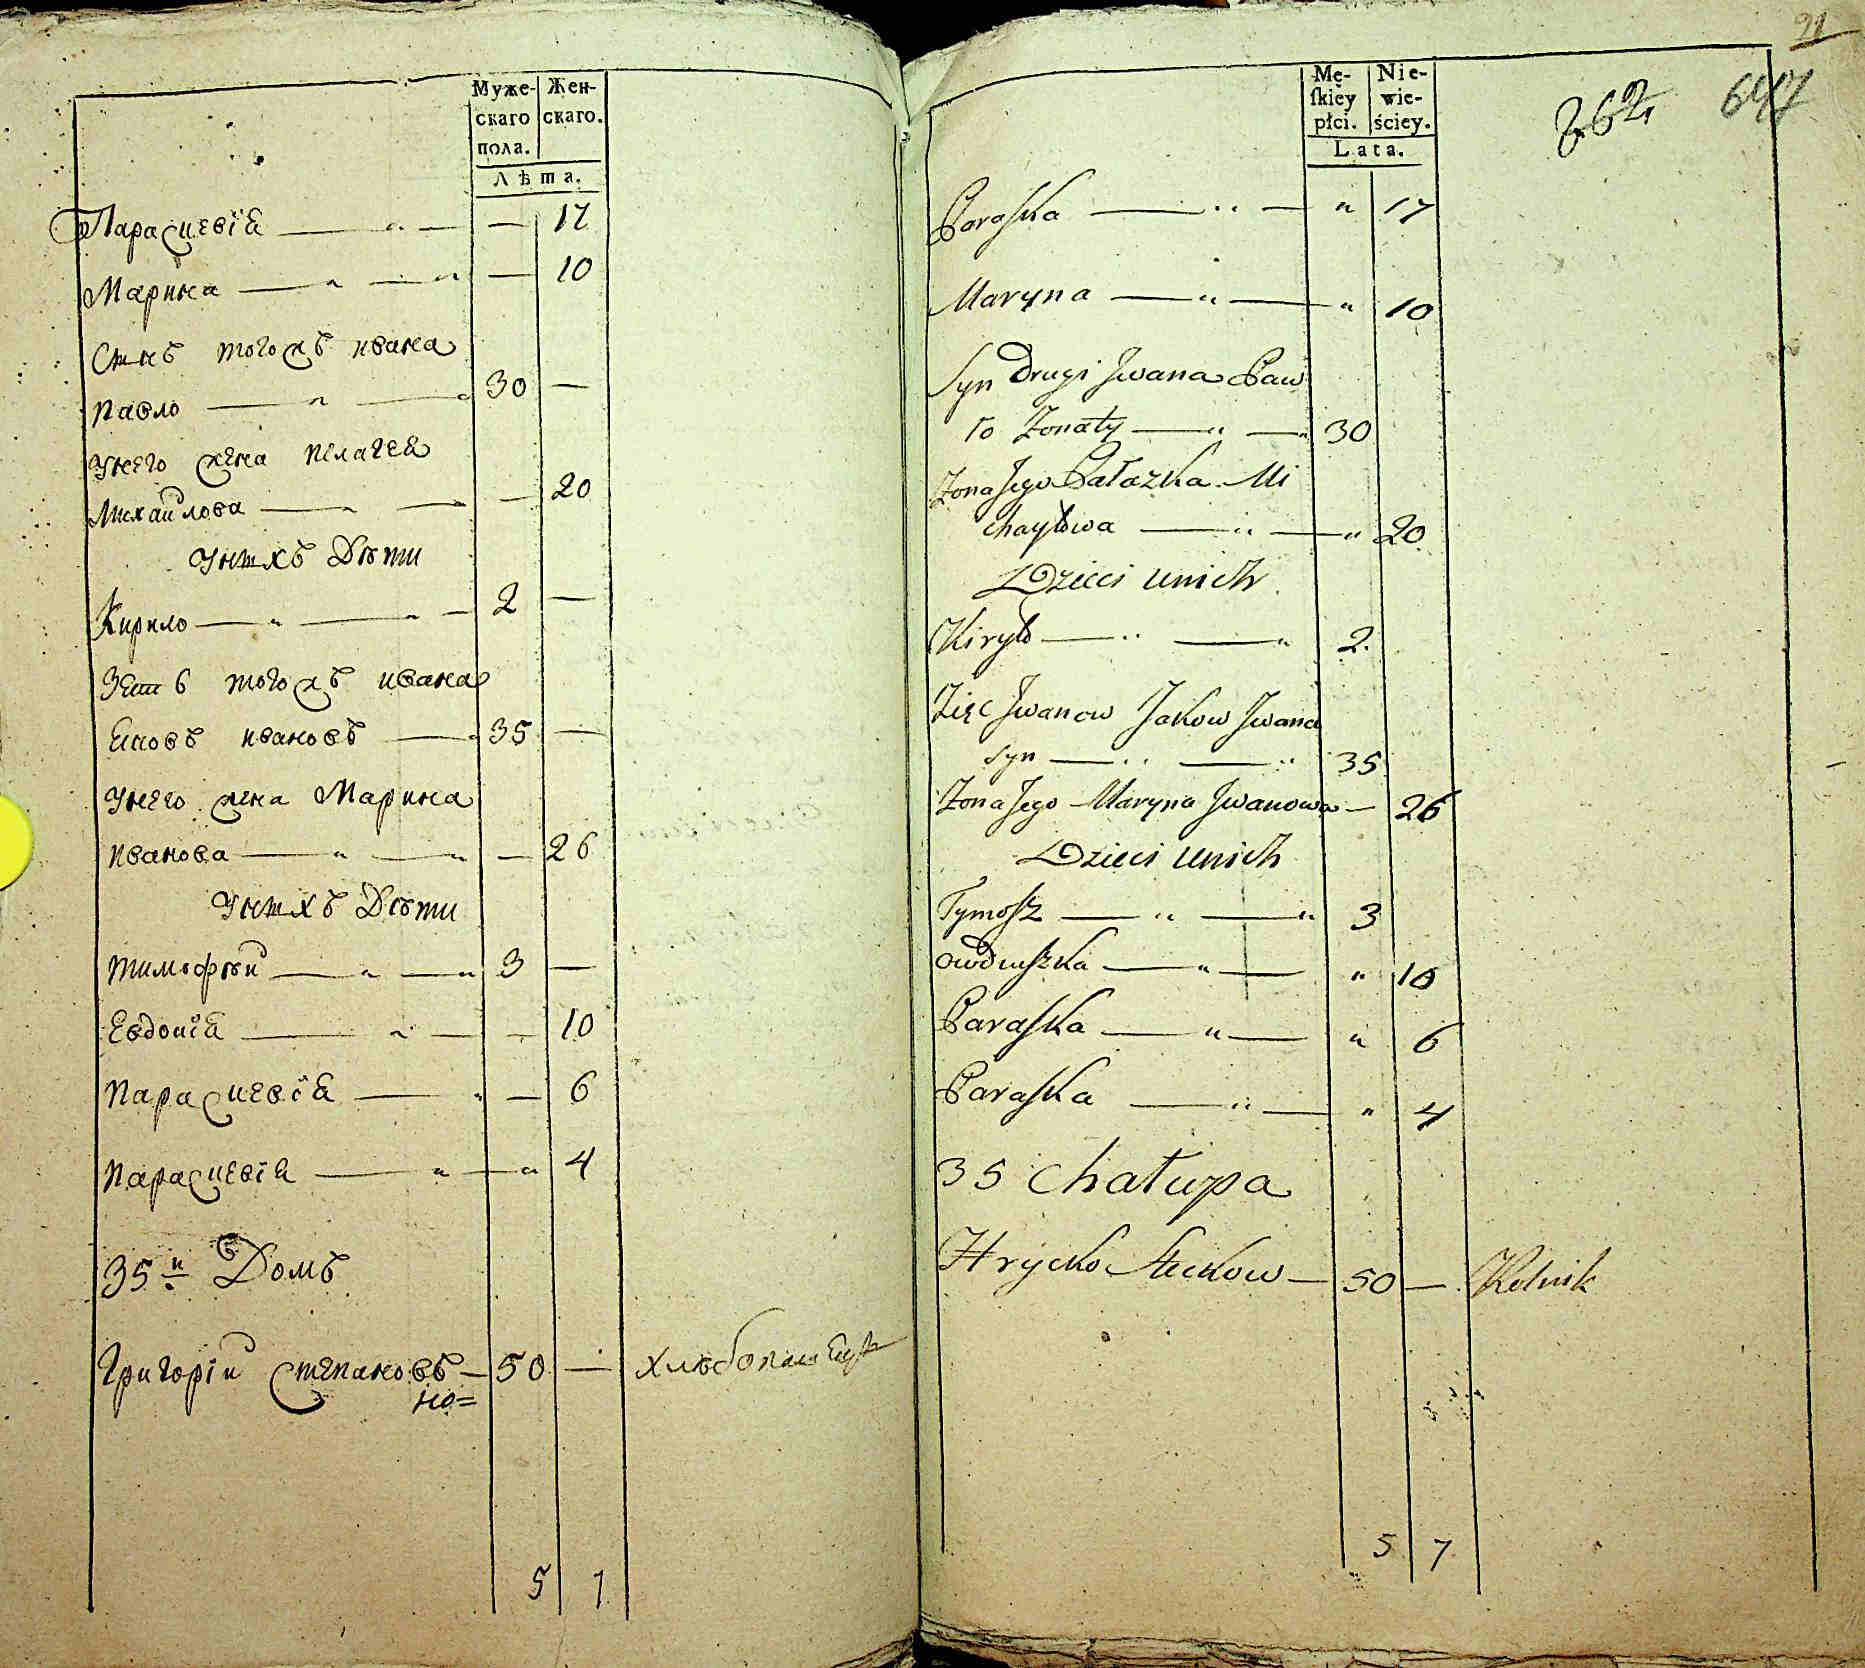 Муже- Жен-
скаго скаго.
пола.
Лѣта.
Параскевіа — 17
Марина — 10
Сынъ тогожъ ивана
павло 30 —
унего жена пелагеа
Михайлова — 20
унихъ Дѣти
Кирило 2 —
Зеть тогожъ ивана
Яковъ ивановъ 35 —
унего жена Марина
иванова — 26
унихъ Дѣти
тимофѣй 3 —
Евдокіа — 10
параскевіа — 6
параскевіа 4
35й Домъ
Григорій степановъ — 50 — хлѣбопашецъ
но=
5 7
21
262 647
Mę- Nie-
skiey wie-
płci. ściey.
Lata.
Paraska — " — " 17
Maryna — " — " 10
Syn Drugi Jwana Paw
ło Żonaty — " — " 30
Żona Jego Pałazka Mi
chayłowa — " — " 20
Dzieci unich
Kiryło — " — " 2
Zięc Jwanow Jakow Jwana
syn — " — " 35
Żona Jego Maryna Jwanowa — 26
Dzieci unich
Tymosz — " — " 3
owduszka — " — " 10
Paraska — " — " 6
Paraska — " — " 4
35 Chałupa
Hrycko Steckow — 50 — Rolnik
5 7